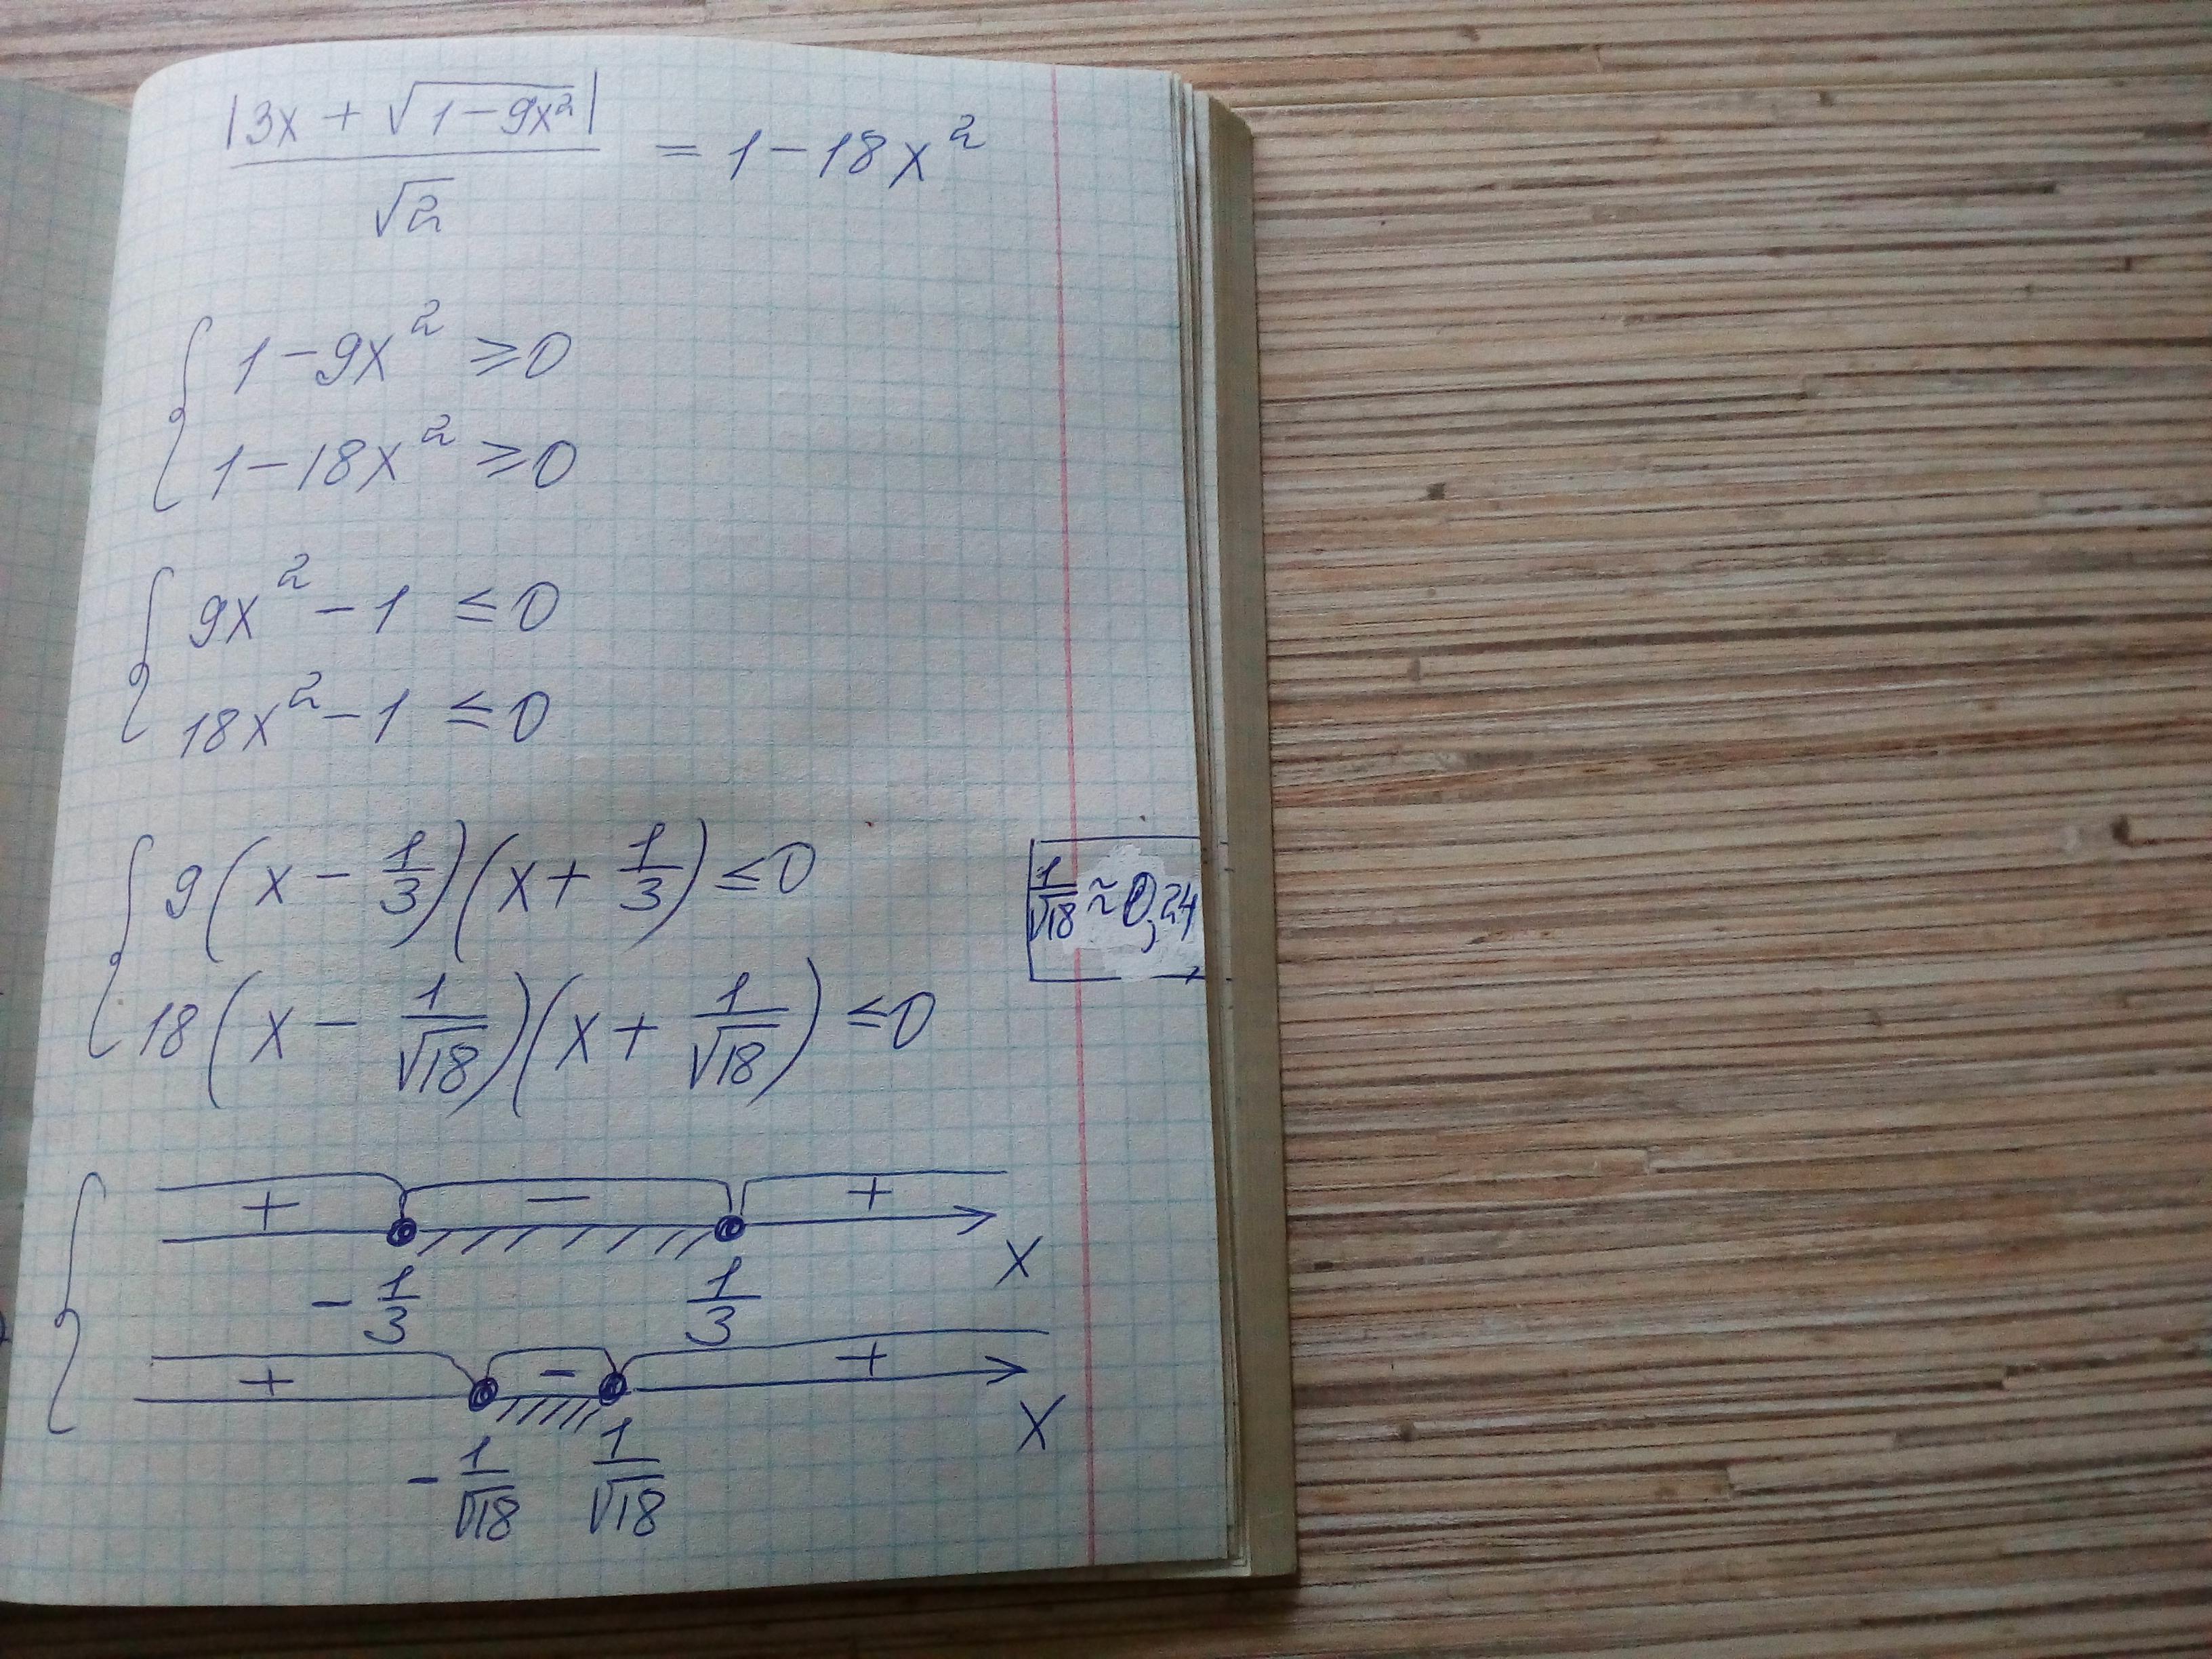 |3x + √(1-9x²)| / √2 = 1-18x²
{ 1-9x² ⩾0
1-18x² ⩾0
{ 9x²-1 ≤0
18x²-1 ≤0
{ 9(x - 1/3)(x + 1/3) ≤0
1/√18 ≈0,24
18(x - 1/√18)(x + 1/√18) ≤0
{ + - +
x
-1/3 1/3
+ - +
x
-1/√18 1/√18